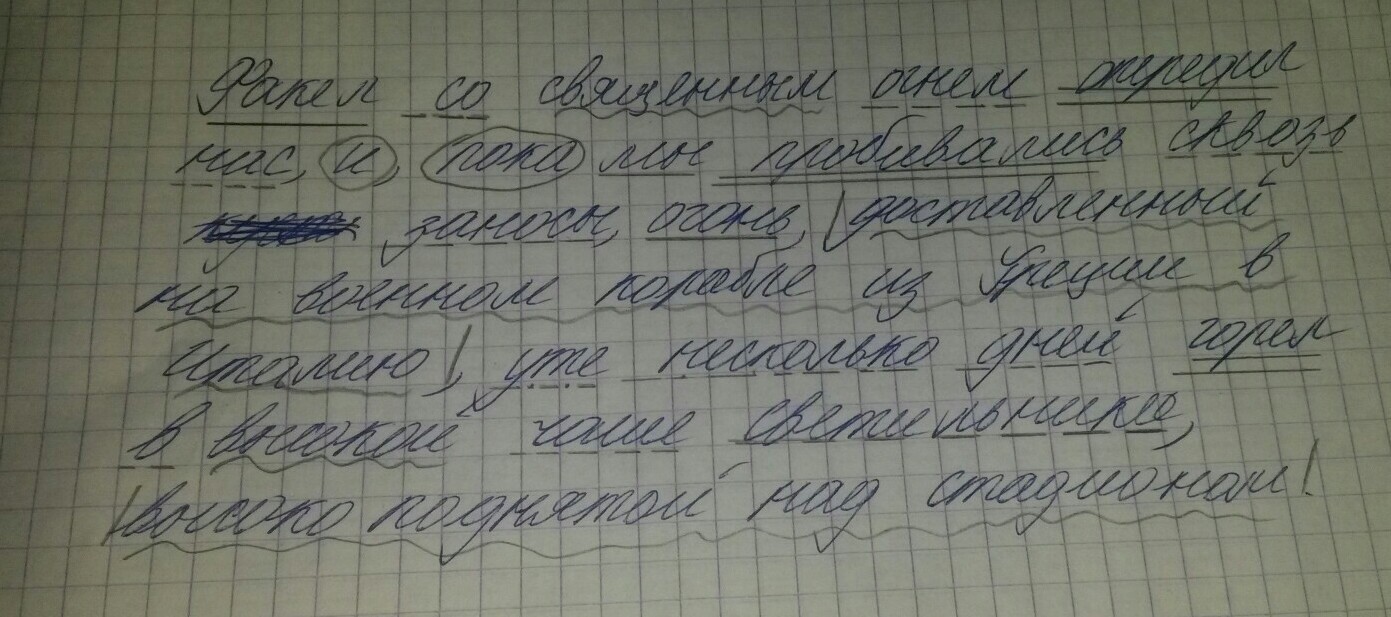 Факел со священным огнем опередил
нас, и, пока мы пробивались сквозь
заносы, огонь, доставленный
на военном корабле из Греции в
Италию, уже несколько дней горел
в высокой чаше светильника,
высоко поднятой над стадионом!